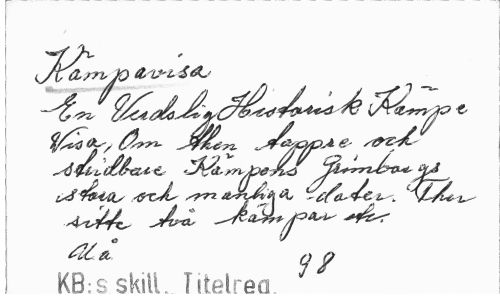 Kämpavisa
En Verdslig Historisk Kämpe
Visa, Om then tappre och
stridbare Kämpens Grimborgs
stora och manliga dater. Ther
sitte två kämpar etc.
U å
98
KB:s skill. Titelreg.